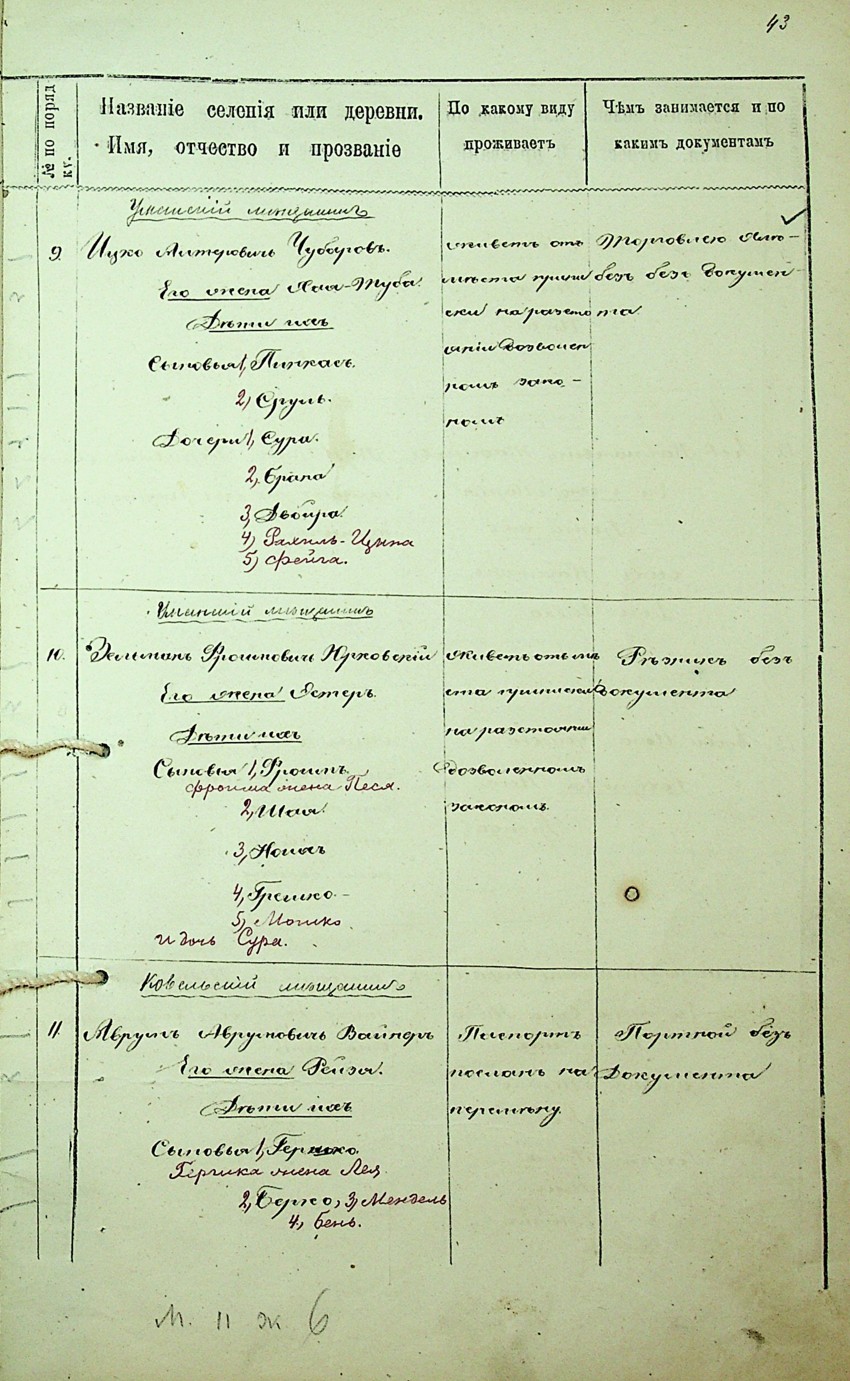 43
№ по поряд
ку.
Названіе селенія или деревни.
Имя, отчество и прозваніе
По какому виду
проживаетъ
Чѣмъ занимается и по
какимъ документамъ
Уманскій мѣщанинъ
9. Ицко Лития Чубаровъ.
Его жена Хая-Туба
Дѣти ихъ
Сыновья 1, Пинкасъ.
2, Сруль.
Дочери 1, Сура.
2, Брана
3, Двойра
4) Рахиль-Ципа
5) Фейга.
живетъ отъ
мѣста припи
ски на разсто
яніи дозволен
номъ зако-
номъ
Торговлею
безъ документа
Уманскій мѣщанинъ
10. Зельманъ Фроимовичъ Юрковскій
Его жена Эстеръ.
Дѣти ихъ
Сыновья 1, Фроимъ
Фроима жена Песя.
2, Шая
3, Ноихъ
4, Гершко
5) Мошко
и дочь Сура.
живетъ отъ мѣ
ста приписки
на разстояніи
дозволенномъ
закономъ.
Рѣзникъ безъ
документа
Ковельскій мѣщанинъ
11. Аврумъ Аврумовичъ Вайнеръ
Его жена Рейза.
Дѣти ихъ
Сыновья 1, Гершко
Гершка жена Лея
2, Берко, 3, Мендель
4, Бень.
Паспортъ
посланъ на
перемѣну
Портной безъ
документа
М. 11 ж 6